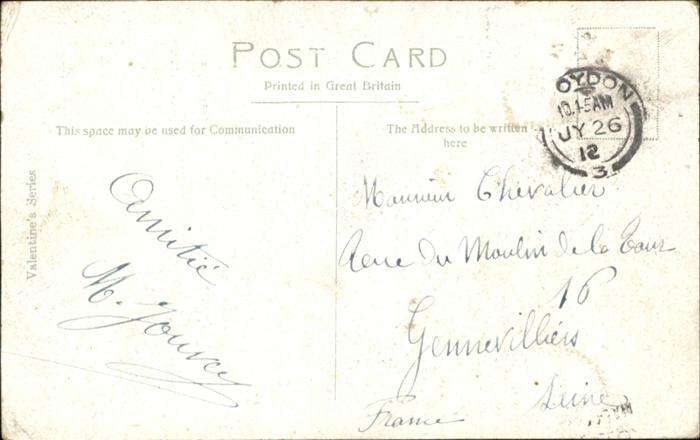 POST CARD
Printed in Great Britain
This space may be used for Communication
The Address to be written here
Valentine's Series
OYDON
10.45AM
JY 26
12
3
Amitié
M.
Monsieur Chevalier
Rue du Moulin de la Tour
16
Gennevilliers
Seine
France